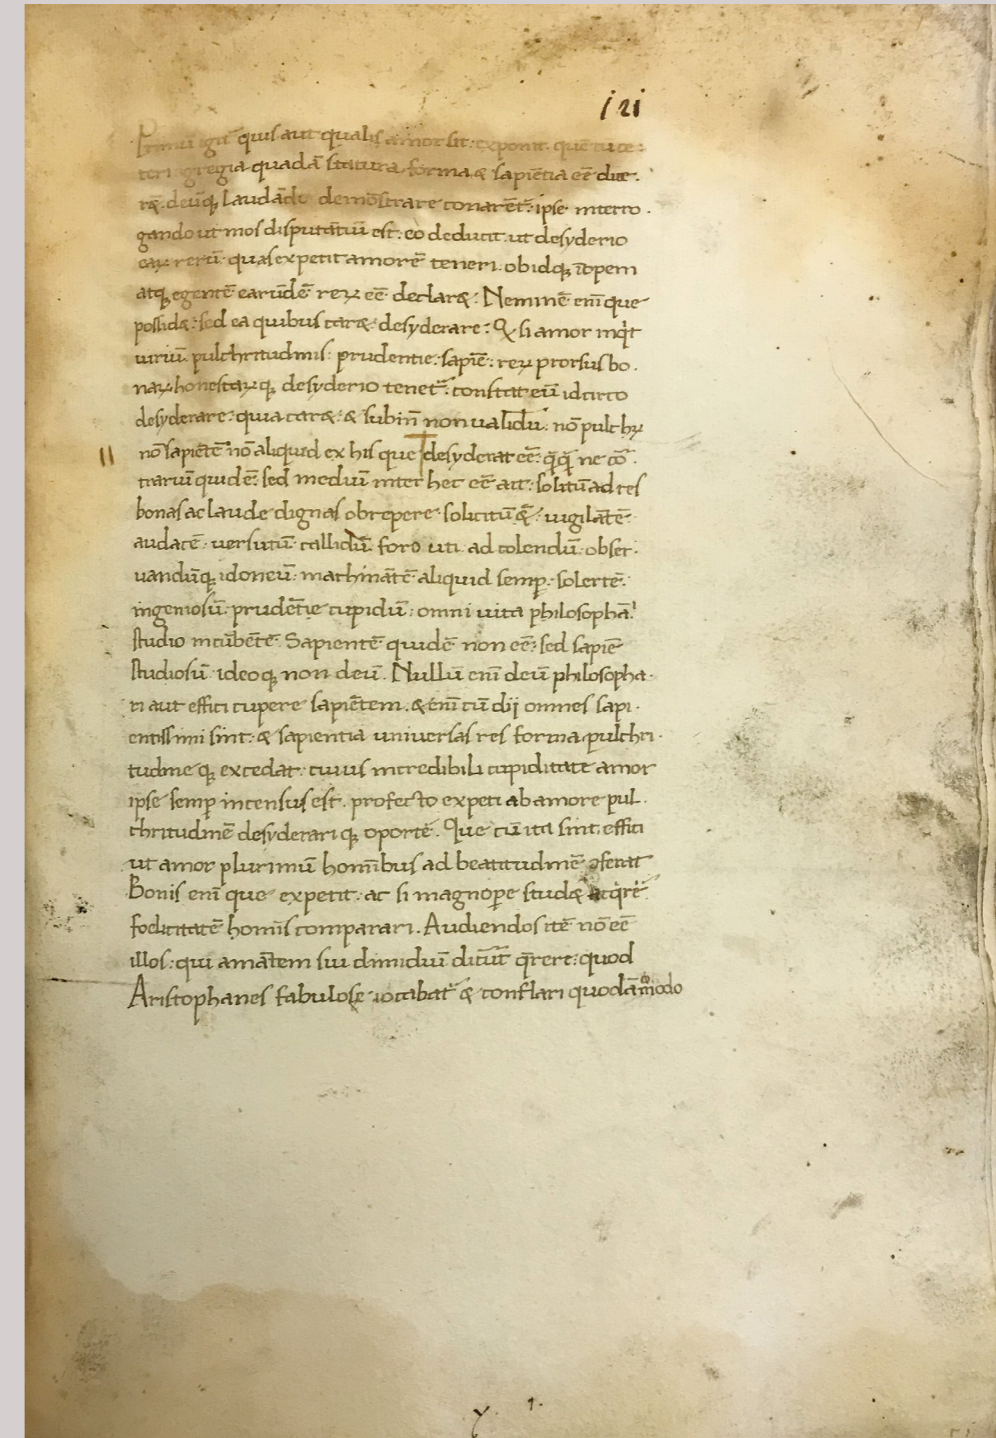 121
Primũ igit̃ quis aut qualis amor sit: exponit. quẽ cũ ce:
teri egregia quadã statura, forma & sapiẽtia eẽ dice.
ræ. deũq; laudãdo demõstrare conarẽt̃: ipse interro.
gando ut mos disputãtiũ est: eo deducit. ut desyderio
eaꝝ rerũ: quas expetit amorẽ teneri. ob idq; ĩopem
atq; egentẽ earũdẽ reꝝ eẽ declaræ: Neminẽ eni᷃ que
possidæ: sed ea quibus caræ: desyderare: Q̃ si amor inq̇t
uirium pulchritudinis: prudentie: sapiẽ: reꝝ prorsus bo.
naꝝ honestaꝝq; desyderio tenet̃: constat eũ idcirco
desyderare: quia caræ: & subinñ non validũ: nõ pulchꝝ
nõ sapiẽtẽ nõ aliquid ex his que desyderat eẽ: q̃q̃ ne cõ.
trarium quidẽ: sed medium inter hec eẽ ait: solitũ ad res
bonas ac laude dignas obrepere: solicitũ &: uigilãtẽ
audacẽ: uersutũ: callidũ: foro uti: ad colendũ: obser.
uandũq; idoneũ: machinãtẽ aliquid semp̱: solertẽ:
ingeniosũ: prudẽtie cupidũ: omni uita philosophã!
studio incũbẽtẽ: Sapientẽ quidẽ non eẽ: sed sapiẽ
studiosũ: ideoq; non deũ. Nullũ eni᷃ deũ philosopha.
ri aut effici cupere sapiẽtem. & eni᷃ cũ dij omnes sapi.
entissimi sint: & sapientia universas res forma pulchri.
tudine q; excedat: cuius incredibili cupiditate amor
ipse semp̱ incensus est. profecto expeti ab amore pul.
chritudinẽ desyderari q; oportẽ. Que cũ ita sint, effici
ut amor plurimũ homĩbus ad beatitudinẽ oferat
Bonis eni᷃ que expetit: ac si magnop̱e studæ acq̇rẽ
foelicitatẽ homĩs comparari. Audiendos itẽ nõ eẽ
illos: qui amãtem sui dimidiũ dicũt q̃rere: quod
Aristophanes fabulose iocabat̃ & conflari quodãmodo
y. 1.